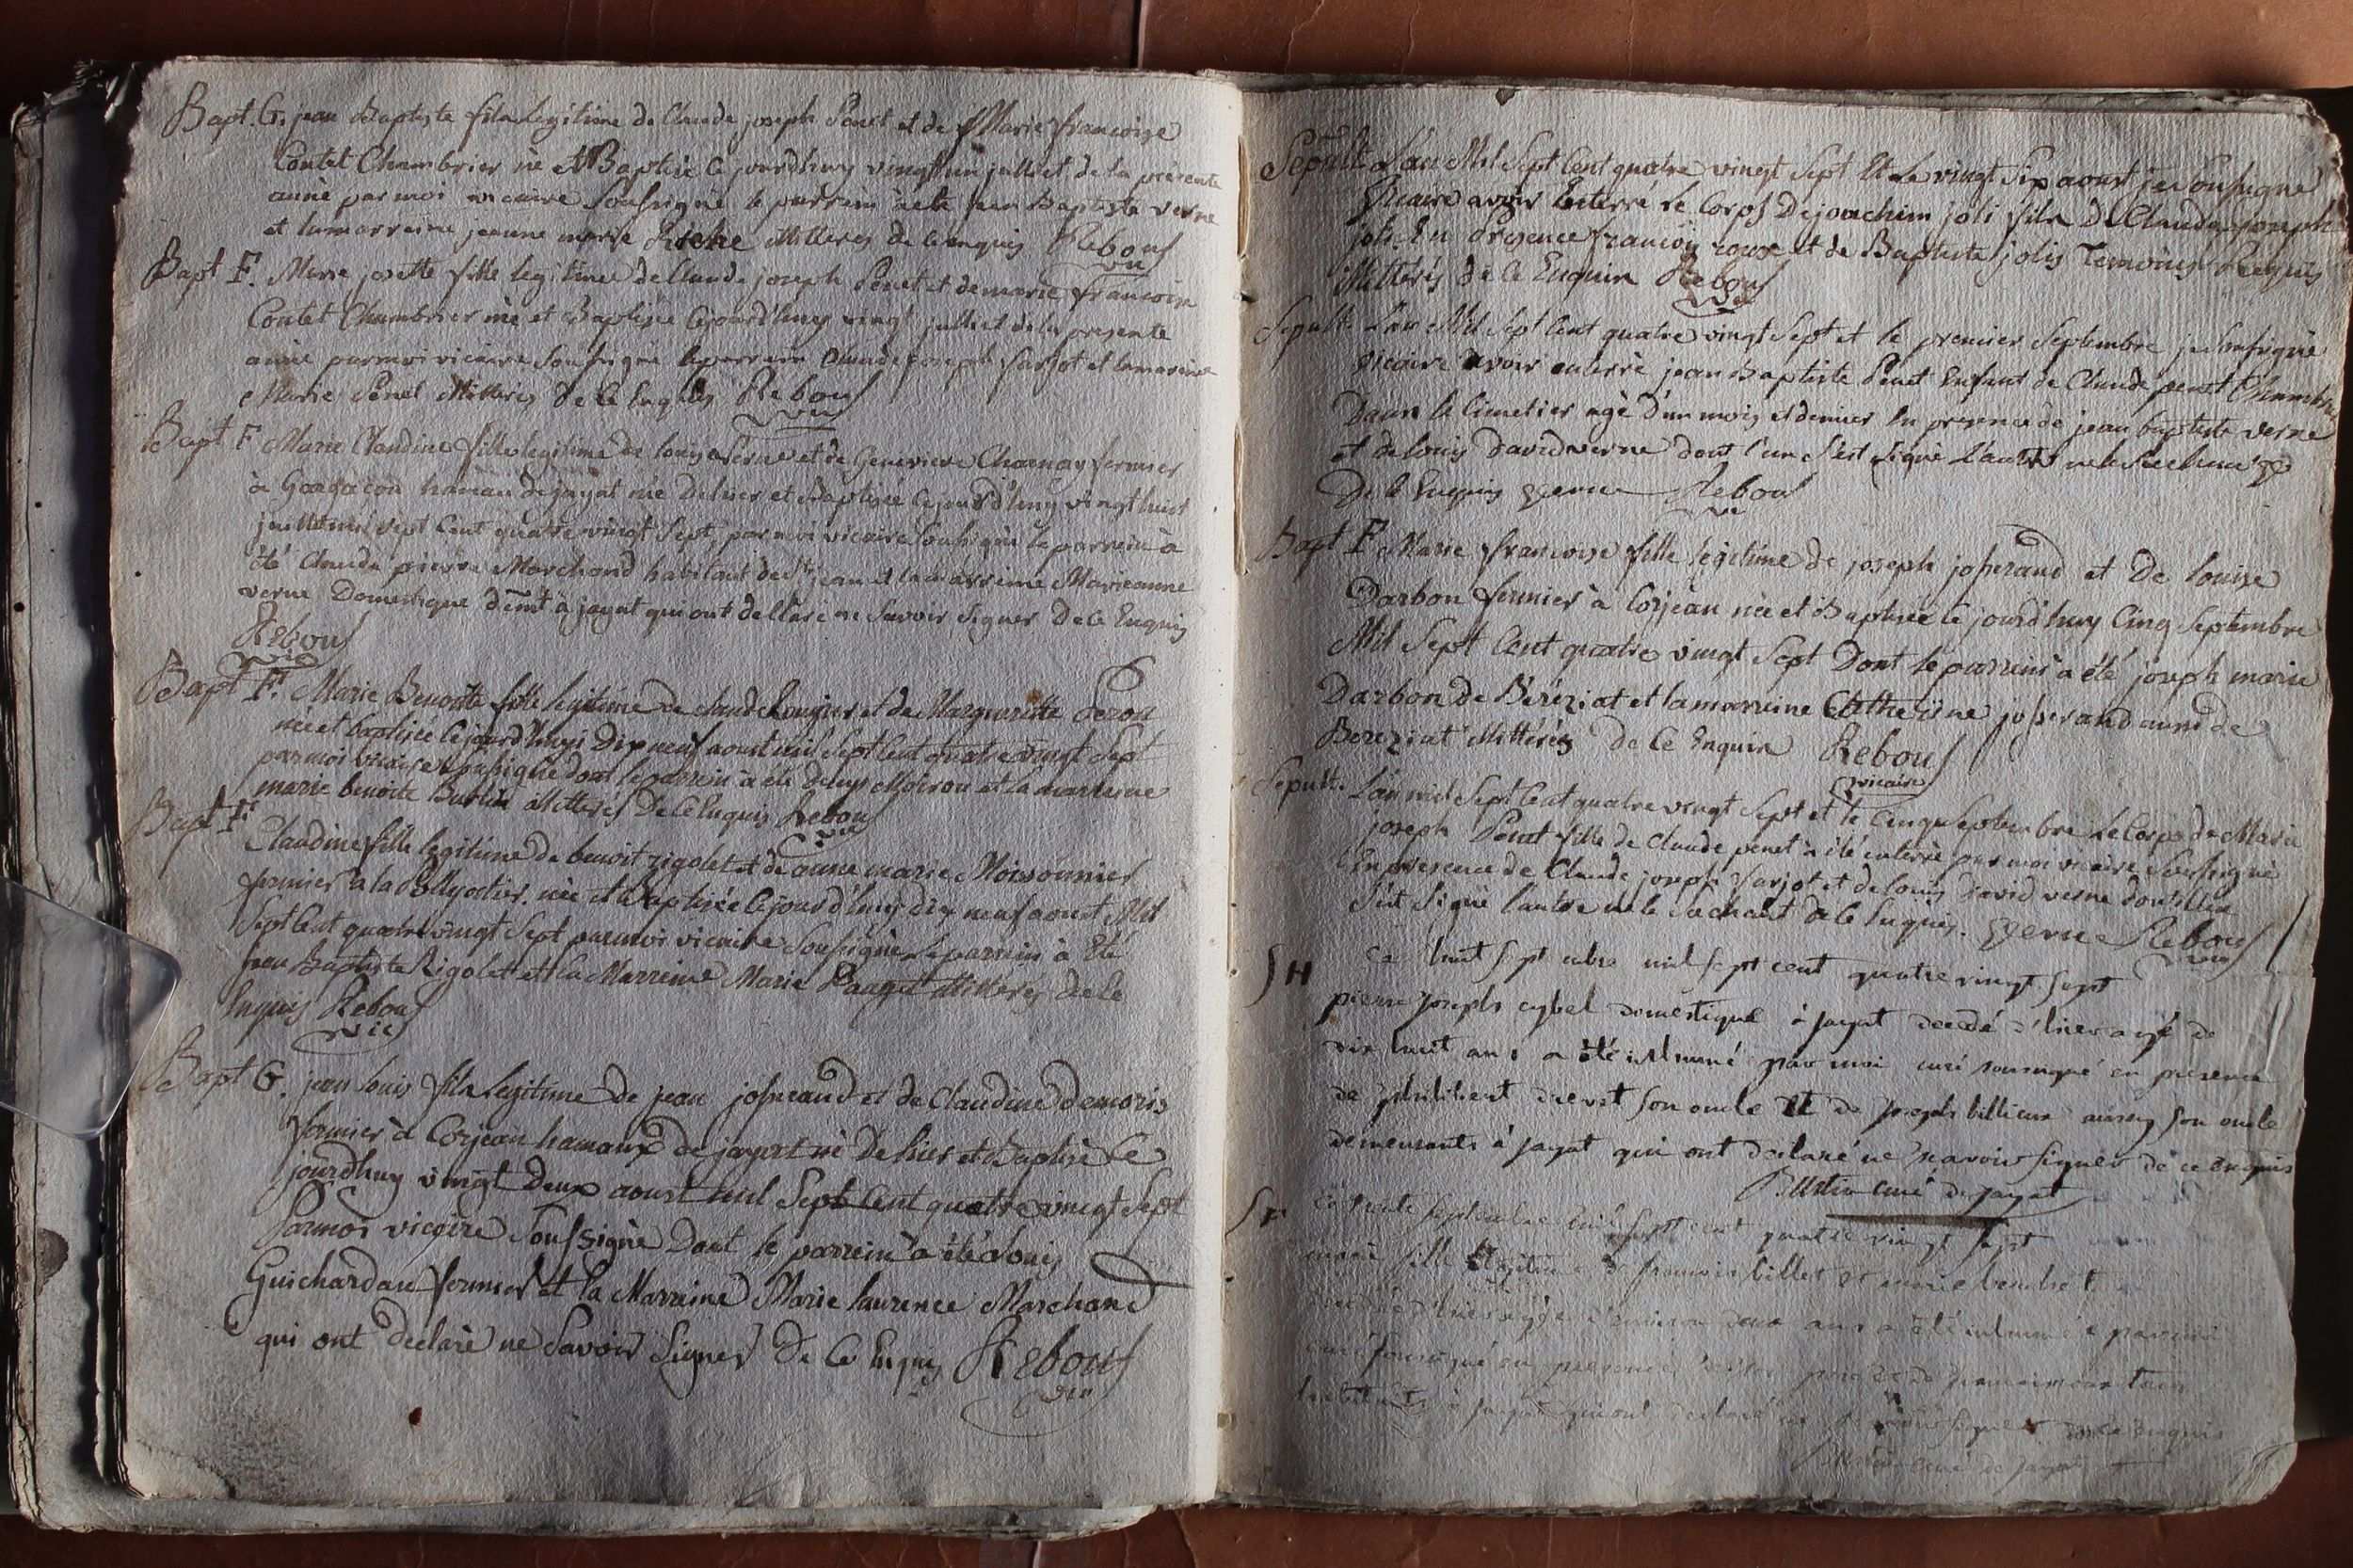 Bapt. G. jean Baptiste fils legitime de Claude joseph Penet et de Marie francoise
Contet Chambrier nè et Baptisé ce jourdhuy vingt un juillet de la présente
année par moi vicaire soussigné le parrein à eté jean Baptiste verne
et la marreine jeanne marie Roche illitteres de ce enquis Rebouf
vic
Bapt F. Marie josette fille legitime de Claude joseph Penet et de marie francoise
Contet Chambrier née et Baptisée ce jourd'huy vingt juillet de la presente
année par moi vicaire soussigné le parrein Claude joseph farjot et la mareine
Marie Penet illitteris de ce enquis Rebouf
vic
Bapt F Marie Claudine fille legitime de louis verne et de Genevieve Charnay fermier
à hameau de jayat née de hier et Baptisée ce jourd'huy vingt huit
juillet mil sept Cent quatre vingt sept, par moi vicaire soussigné le parrein à
été Claude pierre Marchand habitant de st jean et la marreine Marieanne
verne Domestique demt à jayat qui ont declaré ne savoir signer de ce Enquis
Rebouf
vic
Bapt F. Marie Benoitte fille legitime de claude et de Marguerite
née et baptisée ce jourdhuy Dix neuf aoust mil sept Cent quatre vingt sept
par moi vicaire soussigné dont le parrein à été denys Moiron et la marreine
marie benoite illitteres De Ce Enquis Rebouf
vic
Bapt F
Claudine fille legitime de benoit rigolet et de anne marie Moissonnier
fermier à la née et Baptisée ce jourd'huy dix neuf aoust Mil
Sept Cent quatre vingt sept par moi vicaire soussigné le parrein à Eté
jean Baptiste Rigolet et la Marreine Marie Paaget illitteres de ce
enquis Rebouf
vic
Bapt G. jean louis fils legitime de jean josserand et de Claudine demoris
fermier à Corjean hamaux de jayat né De hier et Baptisé Ce
jourdhuy vingt Deux aoust mil Sept Cent quatre vingt Sept
Parmoi vicaire Soussigné Dont le parrein à été louis
Guichardan fermier et la Marreine Marie laurence Marchand
qui ont declaré ne Savoir Signer De Ce Enquis Rebouf
vic
Sepult. L'an Mil Sept Cent quatre vingt Sept Et Le vingt Six aoust je soussigné
Vicaire avoir Enterré le Corps De joachim joli fils De Claude joseph
joli En presence francois roux et de Baptiste jolis Temoins Requis
illitterés de Ce Enquis Rebouf
vic
Sepult. L'an Mil Sept Cent quatre vingt Sept et le premier Septembre je soussigné
vicaire avoir enterré jean Baptiste Penet Enfant de Claude penet Chambrier
Dans le Cimetier agé d'un mois et demier En presence de jean baptiste verne
et de louis David verne dont l'un s'est signé L'autre ne le Sachant
De Ce Enquis verne Rebouf
vic
Bapt F. Marie francoise fille legitime de joseph josserand et De louise
Darbon fermier à Corjean née et Baptisée ce jourd'huy Cinq Septembre
Mil Sept Cent quatre vingt Sept Dont le parrein à été joseph marie
Darbon de Béréziat et la marreine Catherine josserand aussi de
Bereziat illitterés de Ce Enquis Rebouf
vicaire
Sepult. L'an mil Sept Cent quatre vingt Sept et le Cinq Septembre Le Corps de Marie
joseph Penet fille de Claude penet à été enterré par moi vicaire soussigné
En presence de Claude joseph farjot et de louis David verne dont l'un
s'est signé l'autre ne le sachant de ce Enquis. verne Rebouf
vic
S H ce huit septembre mil sept cent quatre vingt sept
pierre joseph cybel domestique à jayat decedé d'hier agé de
dix huit ans a été inhumé par moi curé soussigné en presence
de philibert drevet son oncle et de joseph billieux aussy son oncle
demeurants à jayat qui ont declaré ne scavoir signer de ce enquis
curé de jayat
S F ce trente septembre mil sept cent quatre vingt sept
marie fille légitime de francois billet et marie
decedée d'hier agée d'environ deux ans a été inhumée par moi
curé soussigné en presence
habitants à jayat qui ont declaré ne scavoir signer de ce enquis
curé de jayat